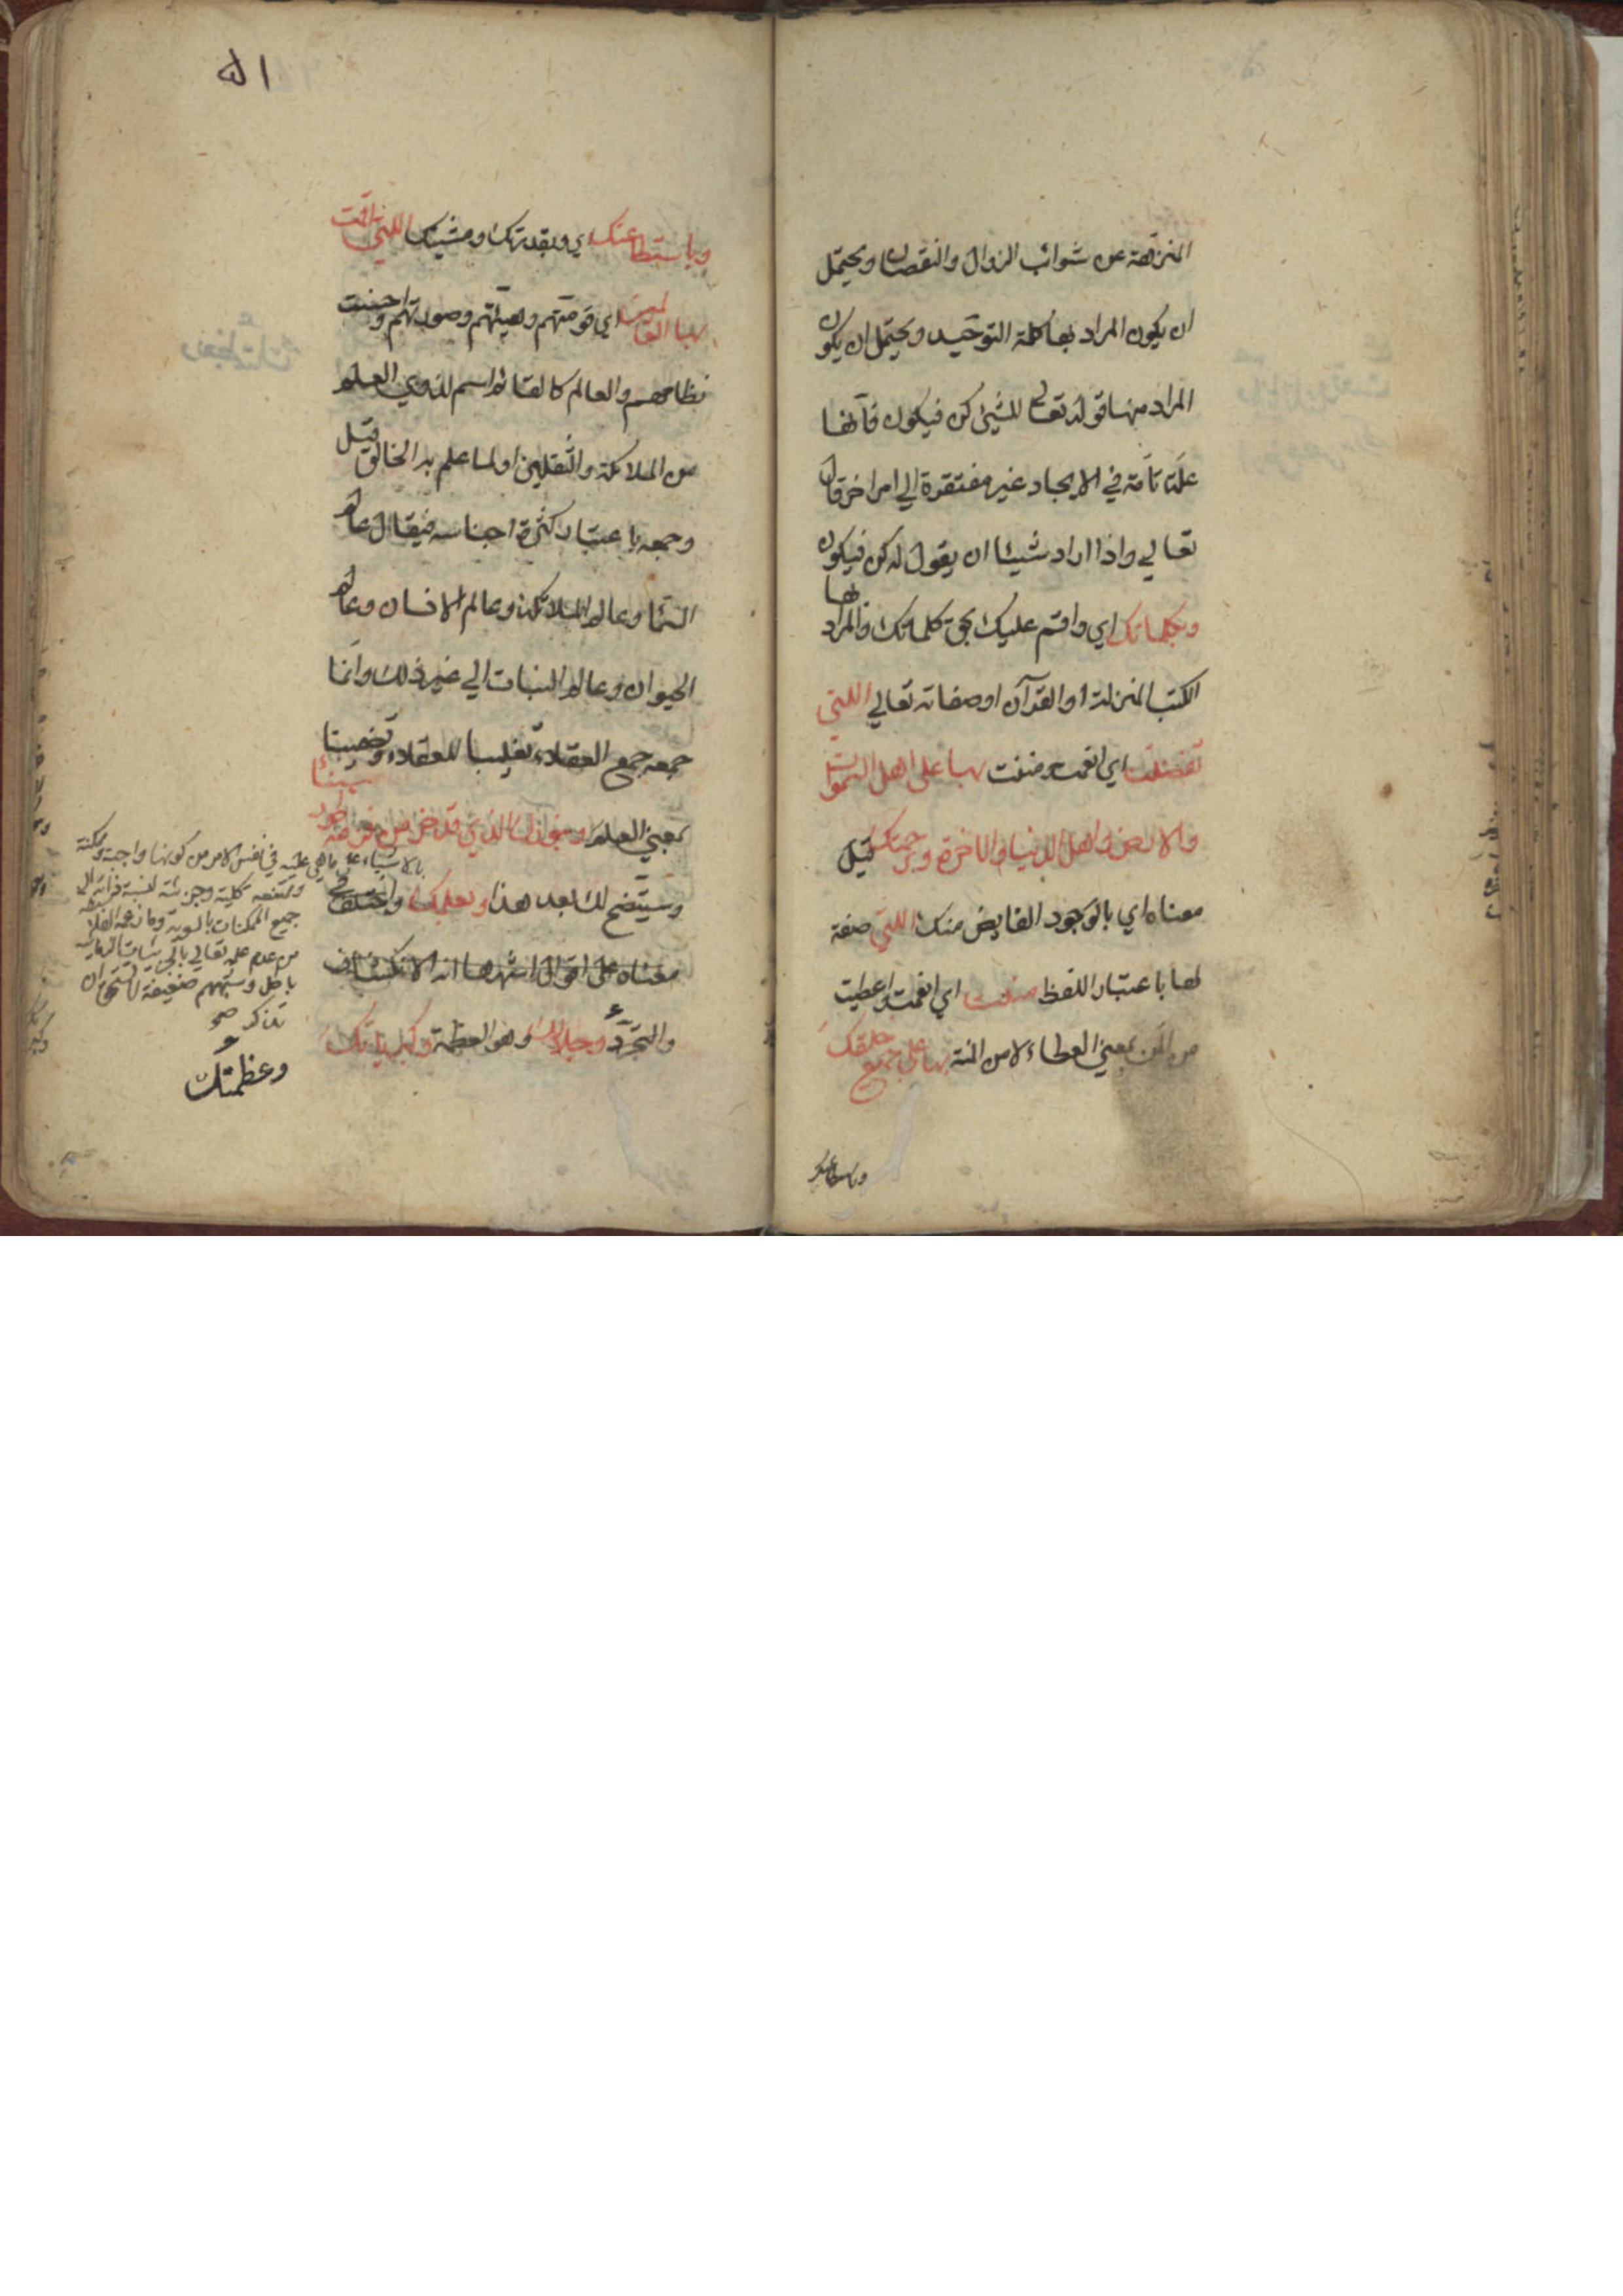 المنزهة عن شوائب الزوال والنقصان ويحتمل
ان يكون المراد بها كلمة التوحيد ويحتمل ان يكون
المراد منها قوله تعالى للشيئ كن فيكون فآنها
علة تامة في الايجاد غير مفتقرة الي امر اخر قال
تعالي واذا اراد شيئا ان يقول له كن فيكون
وبكلماتك اي واقسم عليك بحق كلماتك والمراد بها
الكتب المنزلة او القرآن او صفاته تعالي اللتي
تفضلت اي انعمت ومننت بها على اهل السموات
والارض واهل الدنيا والاخرة وبرحمتك قيل
معناه اي بالوجود الفايض منك اللتي صفة
لها باعتبار اللفظ مننت اي انعمت واعطيت
من المن بمعني العطاء لا من المنة بها على جميع خلقك
وباستطاعتك
۵۱
وباستطاعتك اي وبقدرتك ومشيتك اللتي اقمت
بها العالمين اي قومتهم وهيئتهم وصورتهم واحسنت
نظامهم والعالم كالقائم اسم لذوي العلم
من الملائكة والثقلين او لما علم به الخالق قيل
وجمعه باعتبار كثرة اجناسه فيقال عالم
السماء وعالم الملائكة وعالم الانسان وعالم
الحيوان وعالم النبات الي غير ذلك وانما
جمعه جمع العقلاء تغليبا للعقلاء
بمعني العلم وبنورك الذي قد خر من فزعه طور سيناء
وسيتضح لك بعد هذا وبعلمك واختلف في
معناه على اقوال اشهرها انه الانكشاف
والتجرد وجلالك وهو العظمة وكبريائك
بالاشياء على ما هي عليه في نفس الامر من كونها واجبة وممكنة
وممتنعة كلية وجزئية لنسبة ذاته الى
جميع الممكنات بالسوية وما زعمه الفلاسفة
من عدم علمه تعالي بالجزئيات الزمانية
باطل وشبهتهم ضعيفة لا تستحق ان
تذكر صح
وعظمتك